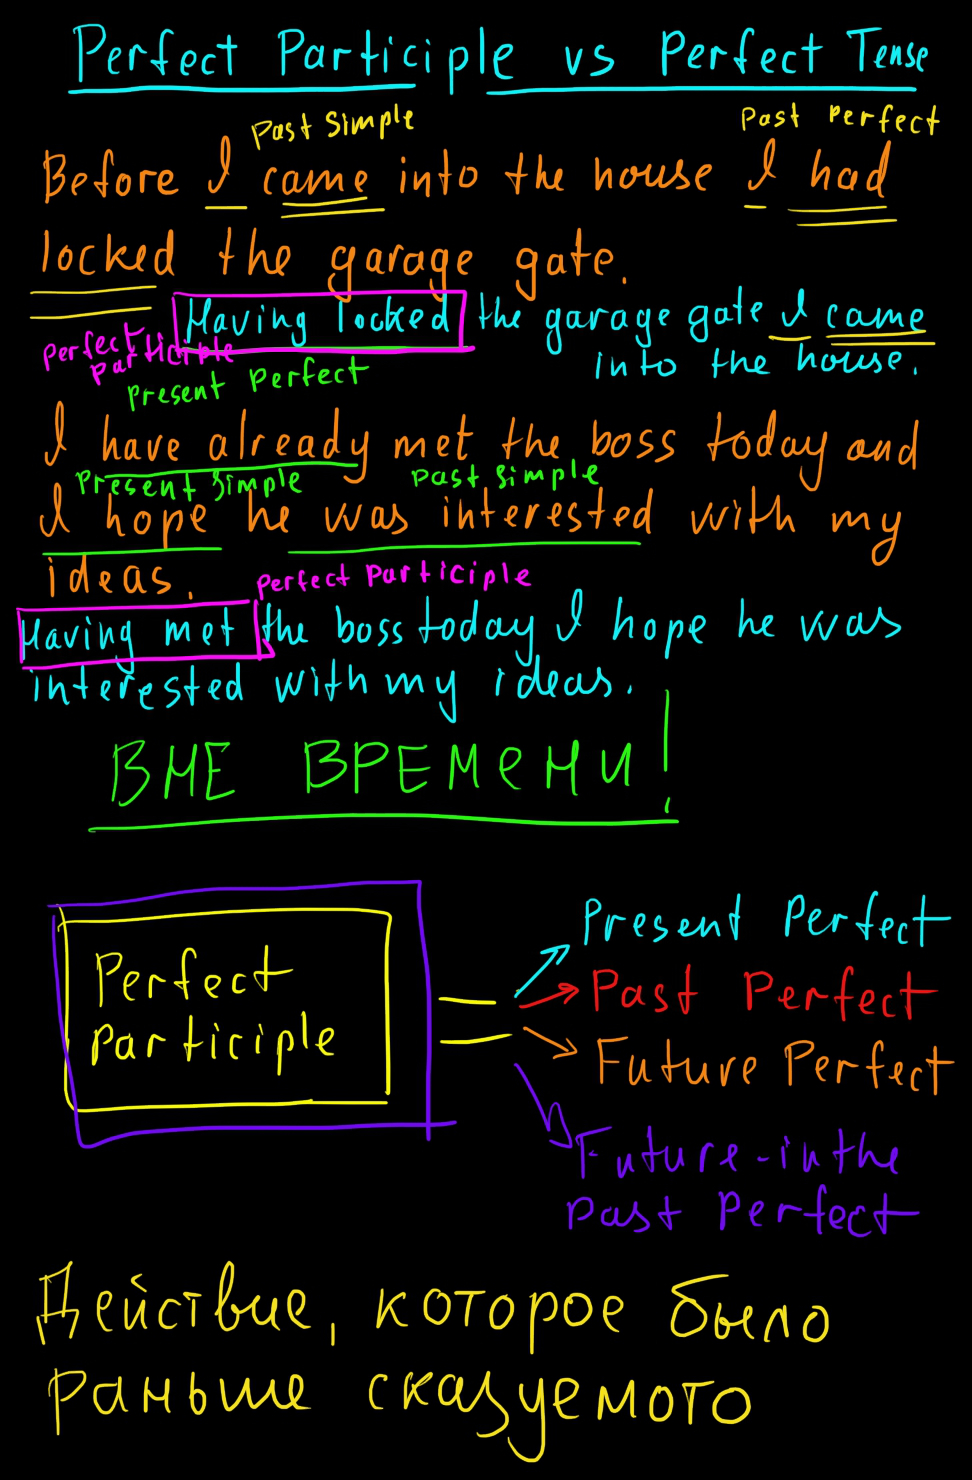 Perfect Participle vs Perfect Tense
Past Simple
Past Perfect
Before I came into the house I had
locked the garage gate.
Having locked the garage gate I came
into the house.
perfect
participle
present perfect
I have already met the boss today and
present simple
past simple
I hope he was interested with my
ideas.
perfect participle
Having met the boss today I hope he was
interested with my ideas.
ВНЕ ВРЕМЕНИ!
Perfect
participle
=
Present Perfect
Past Perfect
Future Perfect
Future-in the
past perfect
Действие, которое было
раньше сказуемого